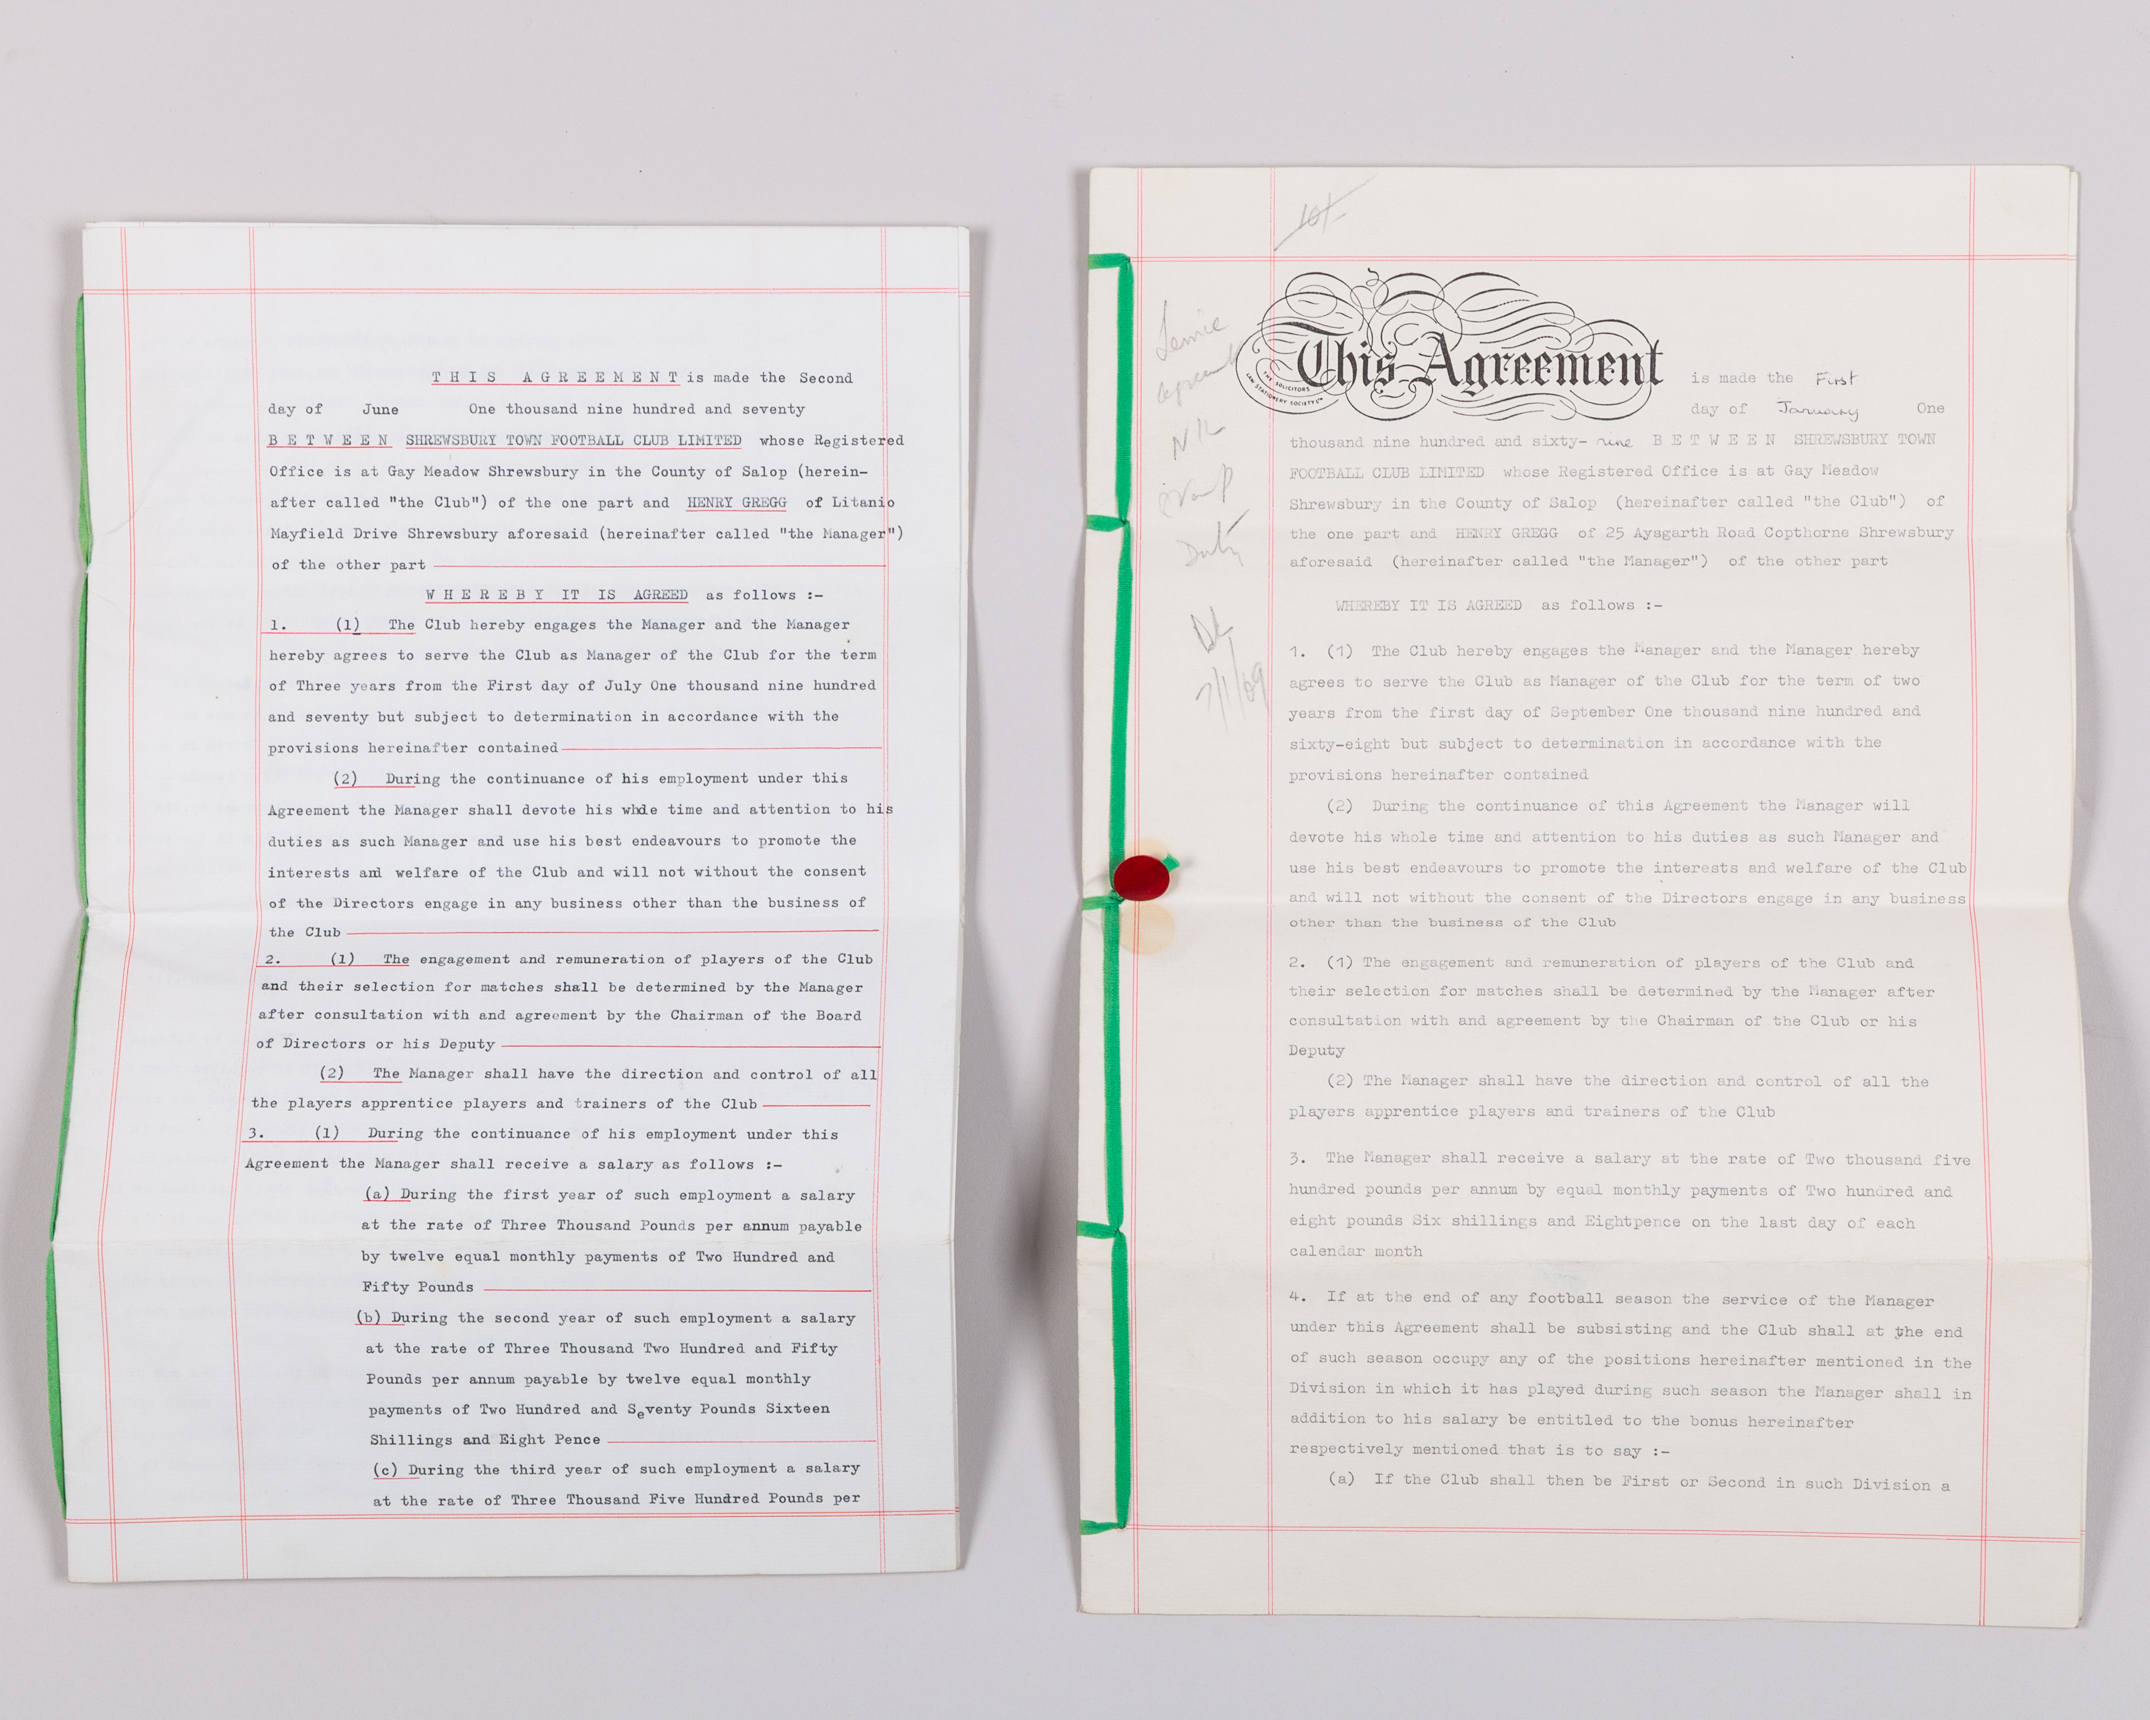 THIS AGREEMENT is made the Second
day of June One thousand nine hundred and seventy
BETWEEN SHREWSBURY TOWN FOOTBALL CLUB LIMITED whose Registered
Office is at Gay Meadow Shrewsbury in the County of Salop (herein-
after called "the Club") of the one part and HENRY GREGG of Litanio
Mayfield Drive Shrewsbury aforesaid (hereinafter called "the Manager")
of the other part
WHEREBY IT IS AGREED as follows :-
1. (1) The Club hereby engages the Manager and the Manager
hereby agrees to serve the Club as Manager of the Club for the term
of Three years from the First day of July One thousand nine hundred
and seventy but subject to determination in accordance with the
provisions hereinafter contained
(2) During the continuance of his employment under this
Agreement the Manager shall devote his whole time and attention to his
duties as such Manager and use his best endeavours to promote the
interests and welfare of the Club and will not without the consent
of the Directors engage in any business other than the business of
the Club
2. (1) The engagement and remuneration of players of the Club
and their selection for matches shall be determined by the Manager
after consultation with and agreement by the Chairman of the Board
of Directors or his Deputy
(2) The Manager shall have the direction and control of all
the players apprentice players and trainers of the Club
3. (1) During the continuance of his employment under this
Agreement the Manager shall receive a salary as follows :-
(a) During the first year of such employment a salary
at the rate of Three Thousand Pounds per annum payable
by twelve equal monthly payments of Two Hundred and
Fifty Pounds
(b) During the second year of such employment a salary
at the rate of Three Thousand Two Hundred and Fifty
Pounds per annum payable by twelve equal monthly
payments of Two Hundred and Seventy Pounds Sixteen
Shillings and Eight Pence
(c) During the third year of such employment a salary
at the rate of Three Thousand Five Hundred Pounds per
10/-
Duty
7/1/69
This Agreement is made the First
THE SOLICITORS
LAW STATIONERY SOCIETY LTD
day of January One
thousand nine hundred and sixty- nine BETWEEN SHREWSBURY TOWN
FOOTBALL CLUB LIMITED whose Registered Office is at Gay Meadow
Shrewsbury in the County of Salop (hereinafter called "the Club") of
the one part and HENRY GREGG of 25 Aysgarth Road Copthorne Shrewsbury
aforesaid (hereinafter called "the Manager") of the other part
WHEREBY IT IS AGREED as follows :-
1. (1) The Club hereby engages the Manager and the Manager hereby
agrees to serve the Club as Manager of the Club for the term of two
years from the first day of September One thousand nine hundred and
sixty-eight but subject to determination in accordance with the
provisions hereinafter contained
(2) During the continuance of this Agreement the Manager will
devote his whole time and attention to his duties as such Manager and
use his best endeavours to promote the interests and welfare of the Club
and will not without the consent of the Directors engage in any business
other than the business of the Club
2. (1) The engagement and remuneration of players of the Club and
their selection for matches shall be determined by the Manager after
consultation with and agreement by the Chairman of the Club or his
Deputy
(2) The Manager shall have the direction and control of all the
players apprentice players and trainers of the Club
3. The Manager shall receive a salary at the rate of Two thousand five
hundred pounds per annum by equal monthly payments of Two hundred and
eight pounds Six shillings and Eightpence on the last day of each
calendar month
4. If at the end of any football season the service of the Manager
under this Agreement shall be subsisting and the Club shall at the end
of such season occupy any of the positions hereinafter mentioned in the
Division in which it has played during such season the Manager shall in
addition to his salary be entitled to the bonus hereinafter
respectively mentioned that is to say :-
(a) If the Club shall then be First or Second in such Division a